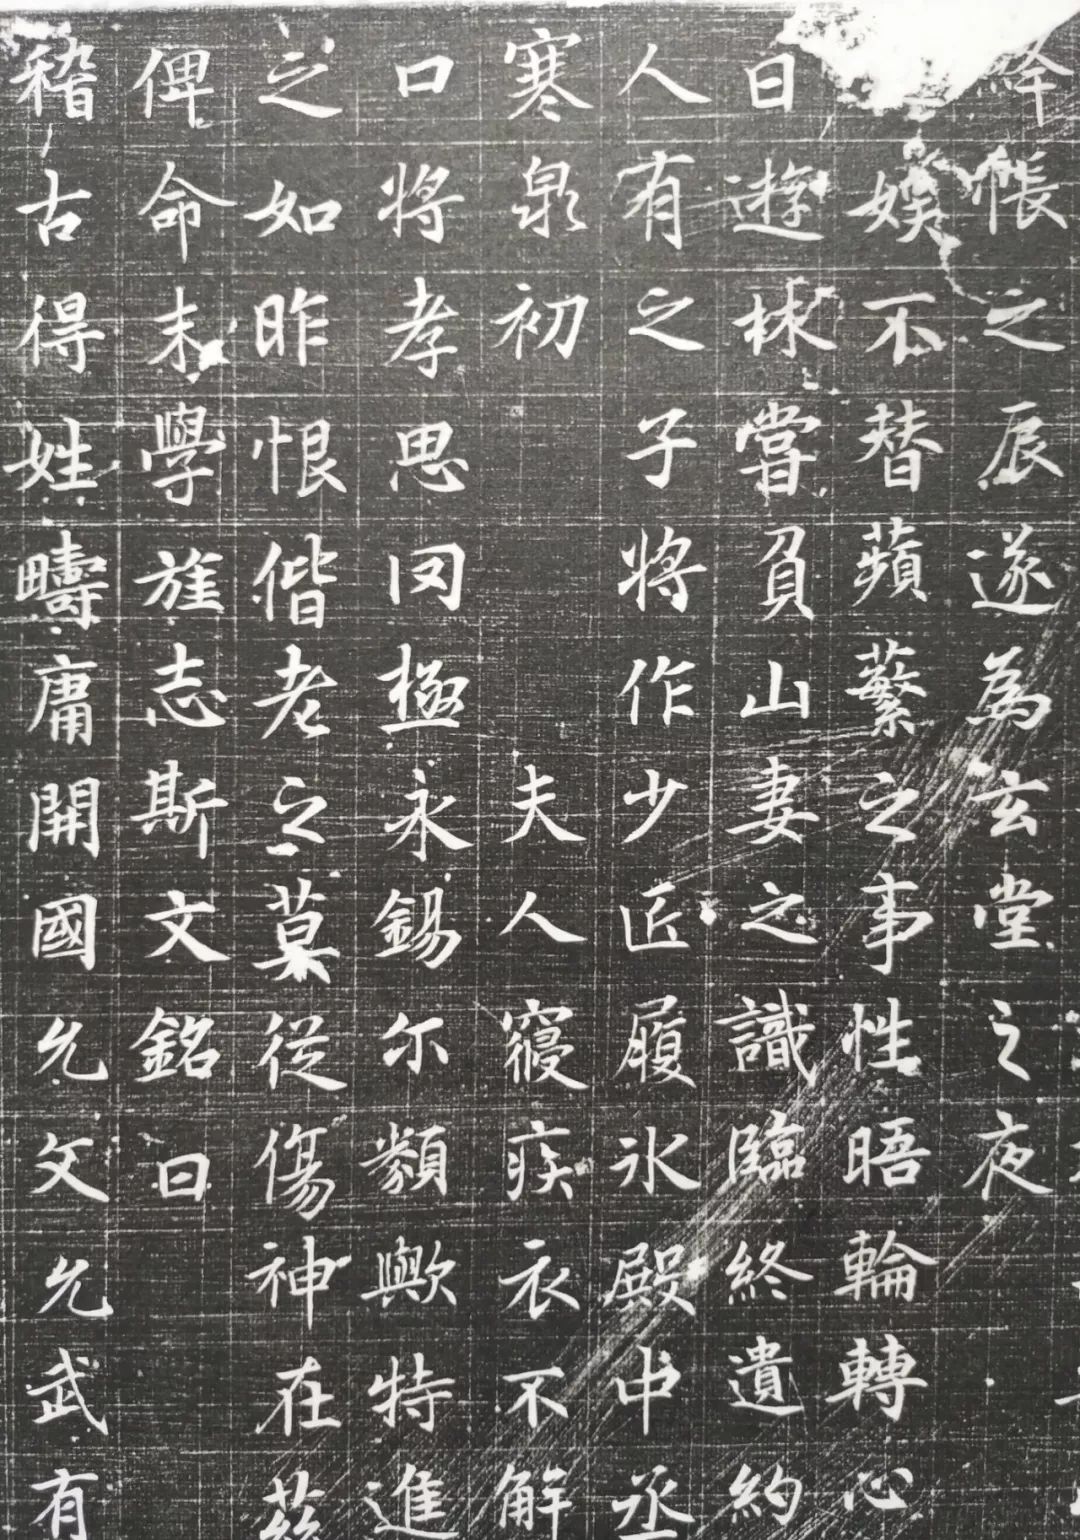 絳帳之辰遂為玄堂之夜
娛不替蘋蘩之事性晤輪轉心
日遊林嘗負山妻之識臨終遺約
人有之子將作少匠履冰殿中丞
寒泉初 夫人寢疾衣不解
口將孝思罔極永錫尒類歟特進
之如昨恨偕老之莫從傷神在茲
俾命末學旌志斯文銘曰
稽古得姓疇庸開國允文允武有